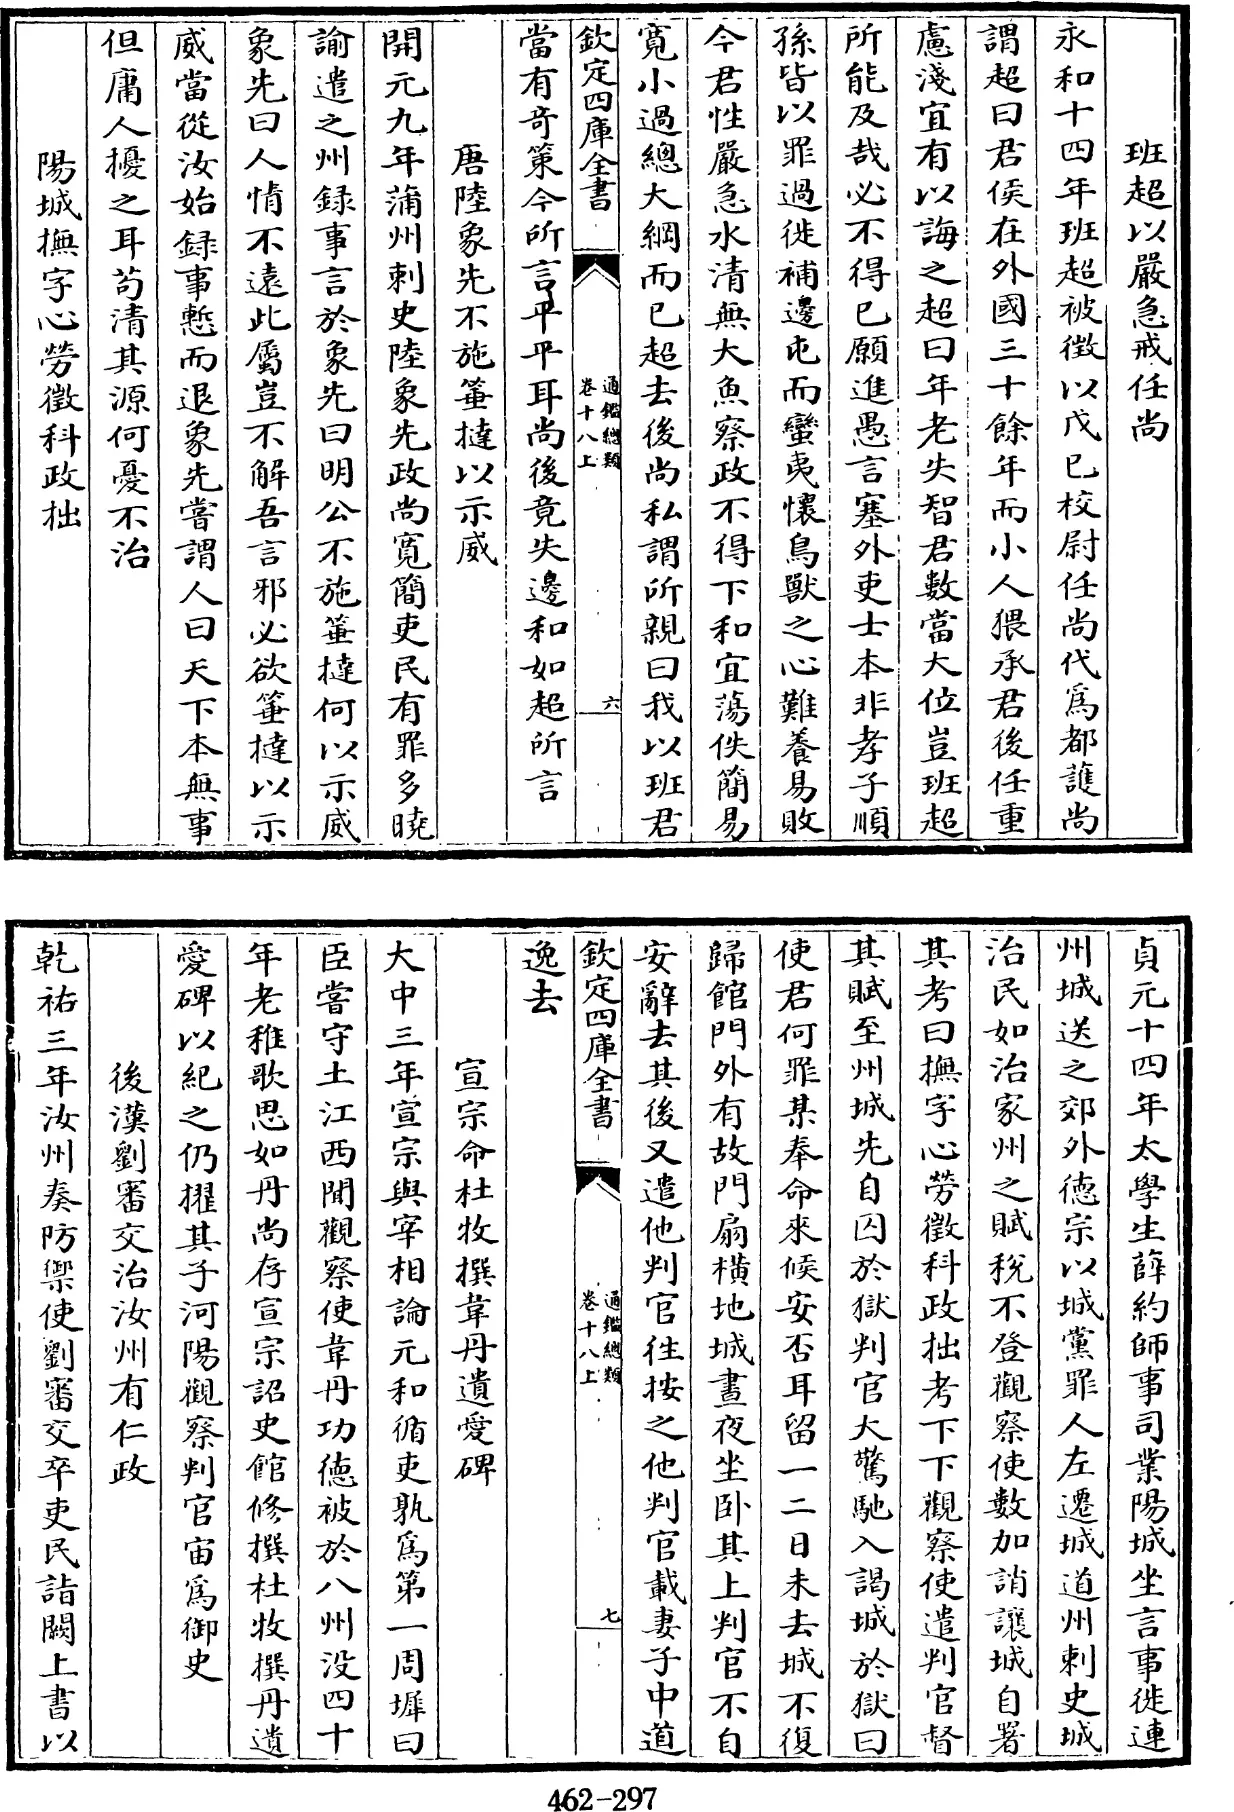 班超以嚴急戒任尚
永和十四年班超被徵以戊巳校尉任尚代爲都護尚
謂超曰君侯在外國三十餘年而小人猥承君後任重
慮淺宜有以誨之超曰年老失智君數當大位豈班超
所能及哉必不得巳願進愚言塞外吏士本非孝子順
孫皆以罪過徙補邊屯而蠻夷懷鳥獸之心難養易敗
今君性嚴急水清無大魚察政不得下和宜蕩佚簡易
寛小過總大綱而巳超去後尚私謂所親曰我以班君
欽定四庫全書
通鑑總類
卷十八上
六
當有奇策今所言平平耳尚後竟失邊和如超所言
唐陸象先不施箠撻以示威
開元九年蒲州刺史陸象先政尚寛簡吏民有罪多曉
諭遣之州録事言於象先曰明公不施箠撻何以示威
象先曰人情不遠此屬豈不解吾言邪必欲箠撻以示
威當從汝始録事慙而退象先嘗謂人曰天下本無事
但庸人擾之耳茍清其源何憂不治
陽城撫字心勞徵科政拙
貞元十四年太學生薛約師事司業陽城坐言事徙連
州城送之郊外德宗以城黨罪人左遷城道州刺史城
治民如治家州之賦稅不登觀察使數加誚讓城自署
其考曰撫字心勞徵科政拙考下下觀察使遣判官督
其賦至州城先自囚於獄判官大驚馳入謁城於獄曰
使君何罪某奉命來候安否耳留一二日未去城不復
歸館門外有故門扇橫地城晝夜坐卧其上判官不自
安辭去其後又遣他判官往按之他判官載妻子中道
欽定四庫全書
通鑑總類
卷十八上
七
逸去
宣宗命杜牧撰韋丹遺愛碑
大中三年宣宗與宰相論元和循吏孰爲第一周墀曰
臣嘗守土江西聞觀察使韋丹功德被於八州没四十
年老稚歌思如丹尚存宣宗詔史館修撰杜牧撰丹遺
愛碑以紀之仍擢其子河陽觀察判官宙爲御史
後漢劉審交治汝州有仁政
乾祐三年汝州奏防禦使劉審交卒吏民詣闕上書以
462-297